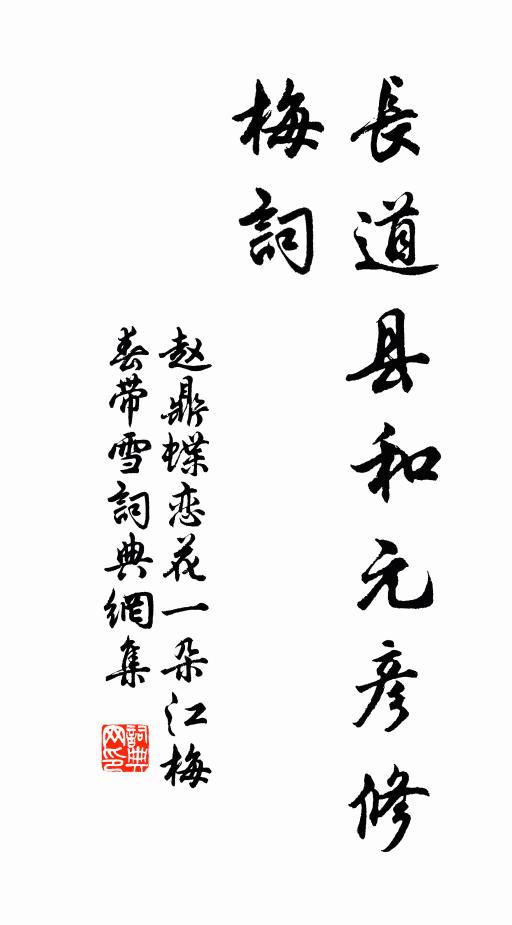 長道县和元彦修
梅詞
赵鼎蝶恋花一朵江梅
春带雪詞典網集
詞典网印